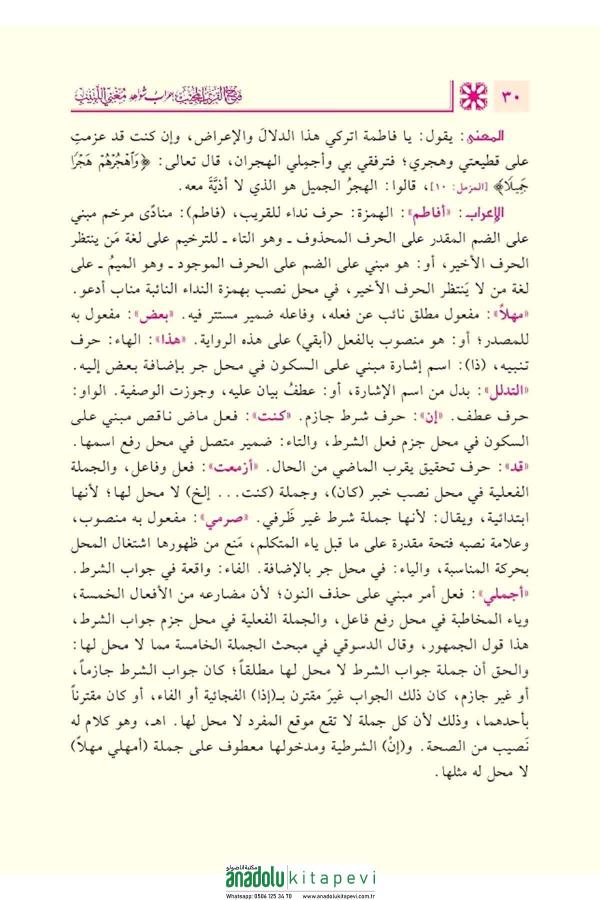 ٣٠ فتح القريب المجيب إعراب شواهد مغني اللبيب
المعنى: يقول: يا فاطمة اتركي هذا الدلالَ والإعراض، وإن كنت قد عزمتِ
على قطيعتي وهجري؛ فترفقي بي وأجمِلي الهجران، قال تعالى: ﴿وَٱهْجُرْهُمْ هَجْرًا
جَمِيلًا﴾ [المزمل: ١٠]، قالوا: الهجرُ الجميل هو الذي لا أذيَّةَ معه.
الإعراب: «أفاطم»: الهمزة: حرف نداء للقريب، (فاطم): منادًى مرخم مبني
على الضم المقدر على الحرف المحذوف ـ وهو التاء ـ للترخيم على لغة مَن ينتظر
الحرف الأخير، أو: هو مبني على الضم على الحرف الموجود ـ وهو الميمُ ـ على
لغة من لا يَنتظر الحرف الأخير، في محل نصب بهمزة النداء النائبة مناب أدعو.
«مهلاً»: مفعول مطلق نائب عن فعله، وفاعله ضمير مستتر فيه. «بعض»: مفعول به
للمصدر؛ أو: هو منصوب بالفعل (أبقي) على هذه الرواية. «هذا»: الهاء: حرف
تنبيه، (ذا): اسم إشارة مبني على السكون في محل جر بإضافة بعض إليه.
«التدلل»: بدل من اسم الإشارة، أو: عطفُ بيان عليه، وجوزت الوصفية. الواو:
حرف عطف. «إن»: حرف شرط جازم. «كنت»: فعل ماض ناقص مبني على
السكون في محل جزم فعل الشرط، والتاء: ضمير متصل في محل رفع اسمها.
«قد»: حرف تحقيق يقرب الماضي من الحال. «أزمعت»: فعل وفاعل، والجملة
الفعلية في محل نصب خبر (كان)، وجملة (كنت... إلخ) لا محل لها؛ لأنها
ابتدائية، ويقال: لأنها جملة شرط غير ظَرفي. «صرمي»: مفعول به منصوب،
وعلامة نصبه فتحة مقدرة على ما قبل ياء المتكلم، مَنع من ظهورها اشتغال المحل
بحركة المناسبة، والياء: في محل جر بالإضافة. الفاء: واقعة في جواب الشرط.
«أجملي»: فعل أمر مبني على حذف النون؛ لأن مضارعه من الأفعال الخمسة،
وياء المخاطبة في محل رفع فاعل، والجملة الفعلية في محل جزم جواب الشرط،
هذا قول الجمهور، وقال الدسوقي في مبحث الجملة الخامسة مما لا محل لها:
والحق أن جملة جواب الشرط لا محل لها مطلقاً؛ كان جواب الشرط جازماً،
أو غير جازم، كان ذلك الجواب غيرَ مقترن بـ(إذا) الفجائية أو الفاء، أو كان مقترناً
بأحدهما، وذلك لأن كل جملة لا تقع موقع المفرد لا محل لها. اهـ، وهو كلام له
نَصيب من الصحة. و(إنْ) الشرطية ومدخولها معطوف على جملة (أمهلي مهلاً)
لا محل له مثلها.
مكتبة اناضولو
anadolu kitapevi
Whatsapp: 0506 125 34 70 www.anadolukitapevi.com.tr